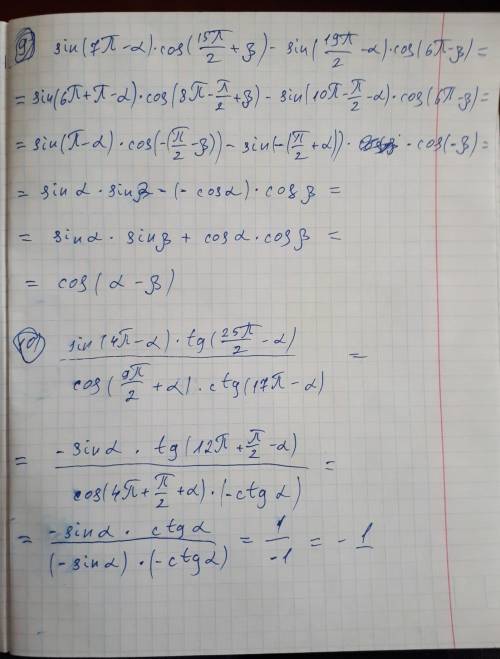 9) sin(7π-α)·cos(15π/2+β) - sin(19π/2-α)·cos(6π-β)=
= sin(6π+π-α)·cos(8π-π/2+β) - sin(10π-π/2-α)·cos(6π-β)=
= sin(π-α)·cos(-(π/2-β)) - sin(-(π/2+α))· ·cos(-β)=
= sinα·sinβ - (-cosα)·cosβ =
= sinα·sinβ + cosα·cosβ =
= cos(α-β)
10) sin(4π-α)·tg(25π/2-α) / cos(9π/2+α)·ctg(17π-α) =
= -sinα·tg(12π+π/2-α) / cos(4π+π/2+α)·(-ctgα) =
= -sinα·ctgα / (-sinα)·(-ctgα) = 1/-1 = -1